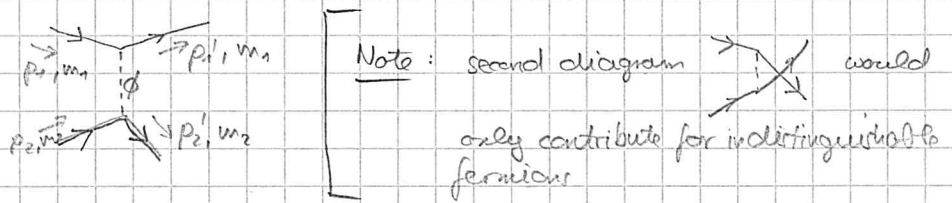 p₁, m₁
p₁', m₁
ϕ
p₂, m₂
p₂', m₂
Note: second diagram would
only contribute for indistinguishable
fermions